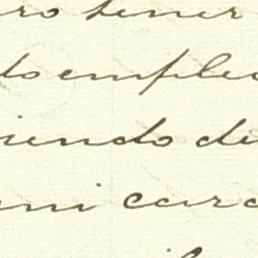 ro tener
do emplea
iendo de
mi cara